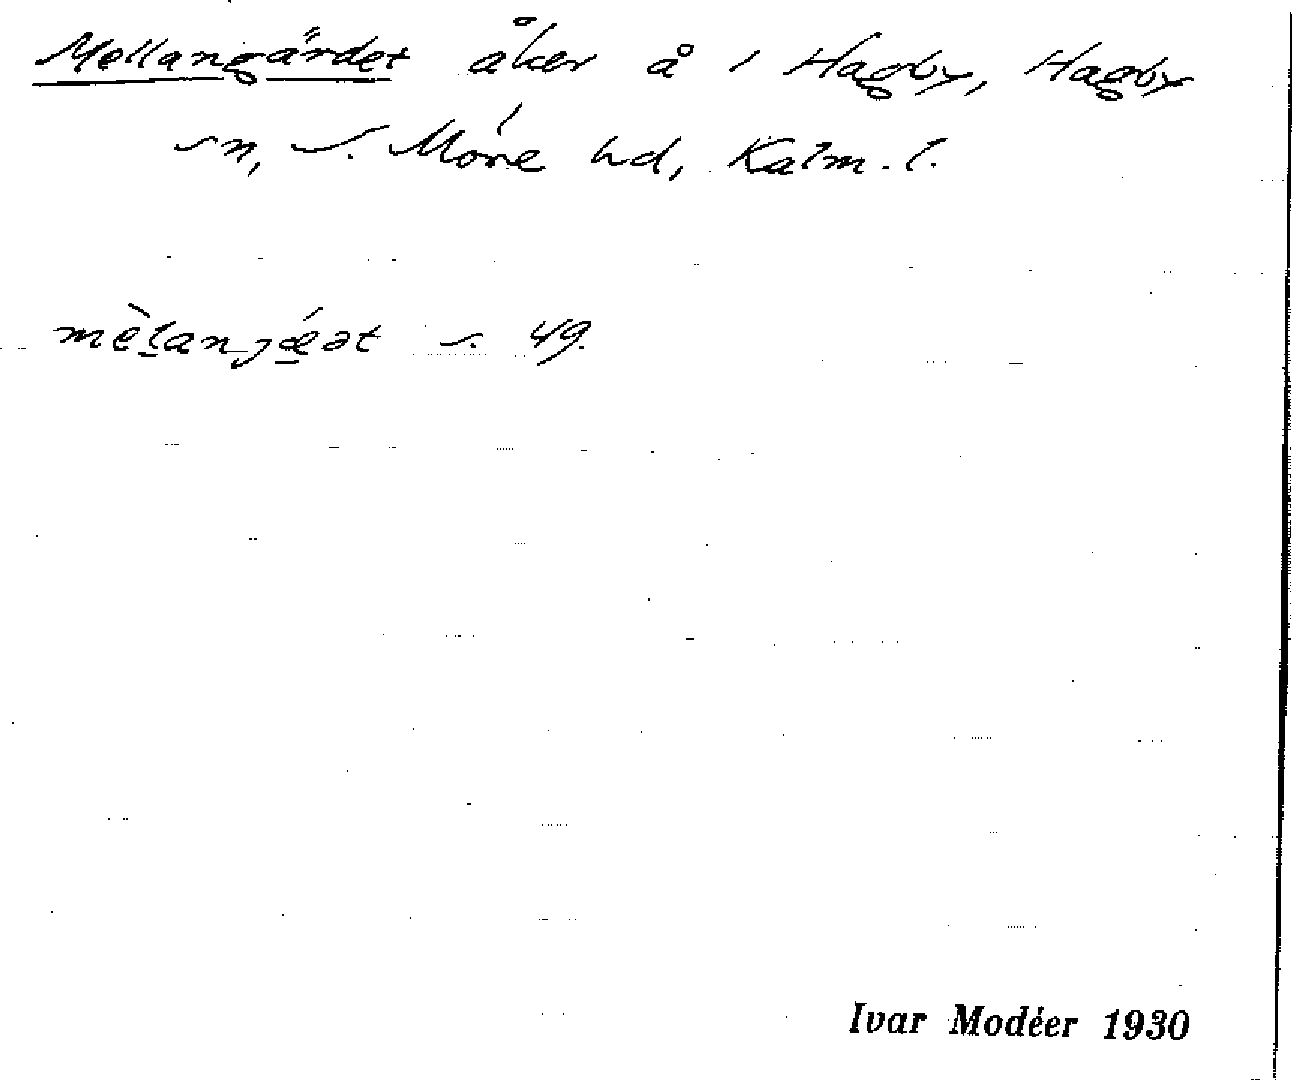 Mellangärdet åker å 1 Hagby, Hagby
sn, S. Möre hd, Kalm. l.
mèlanjǽət s. 49.
Ivar Modéer 1930